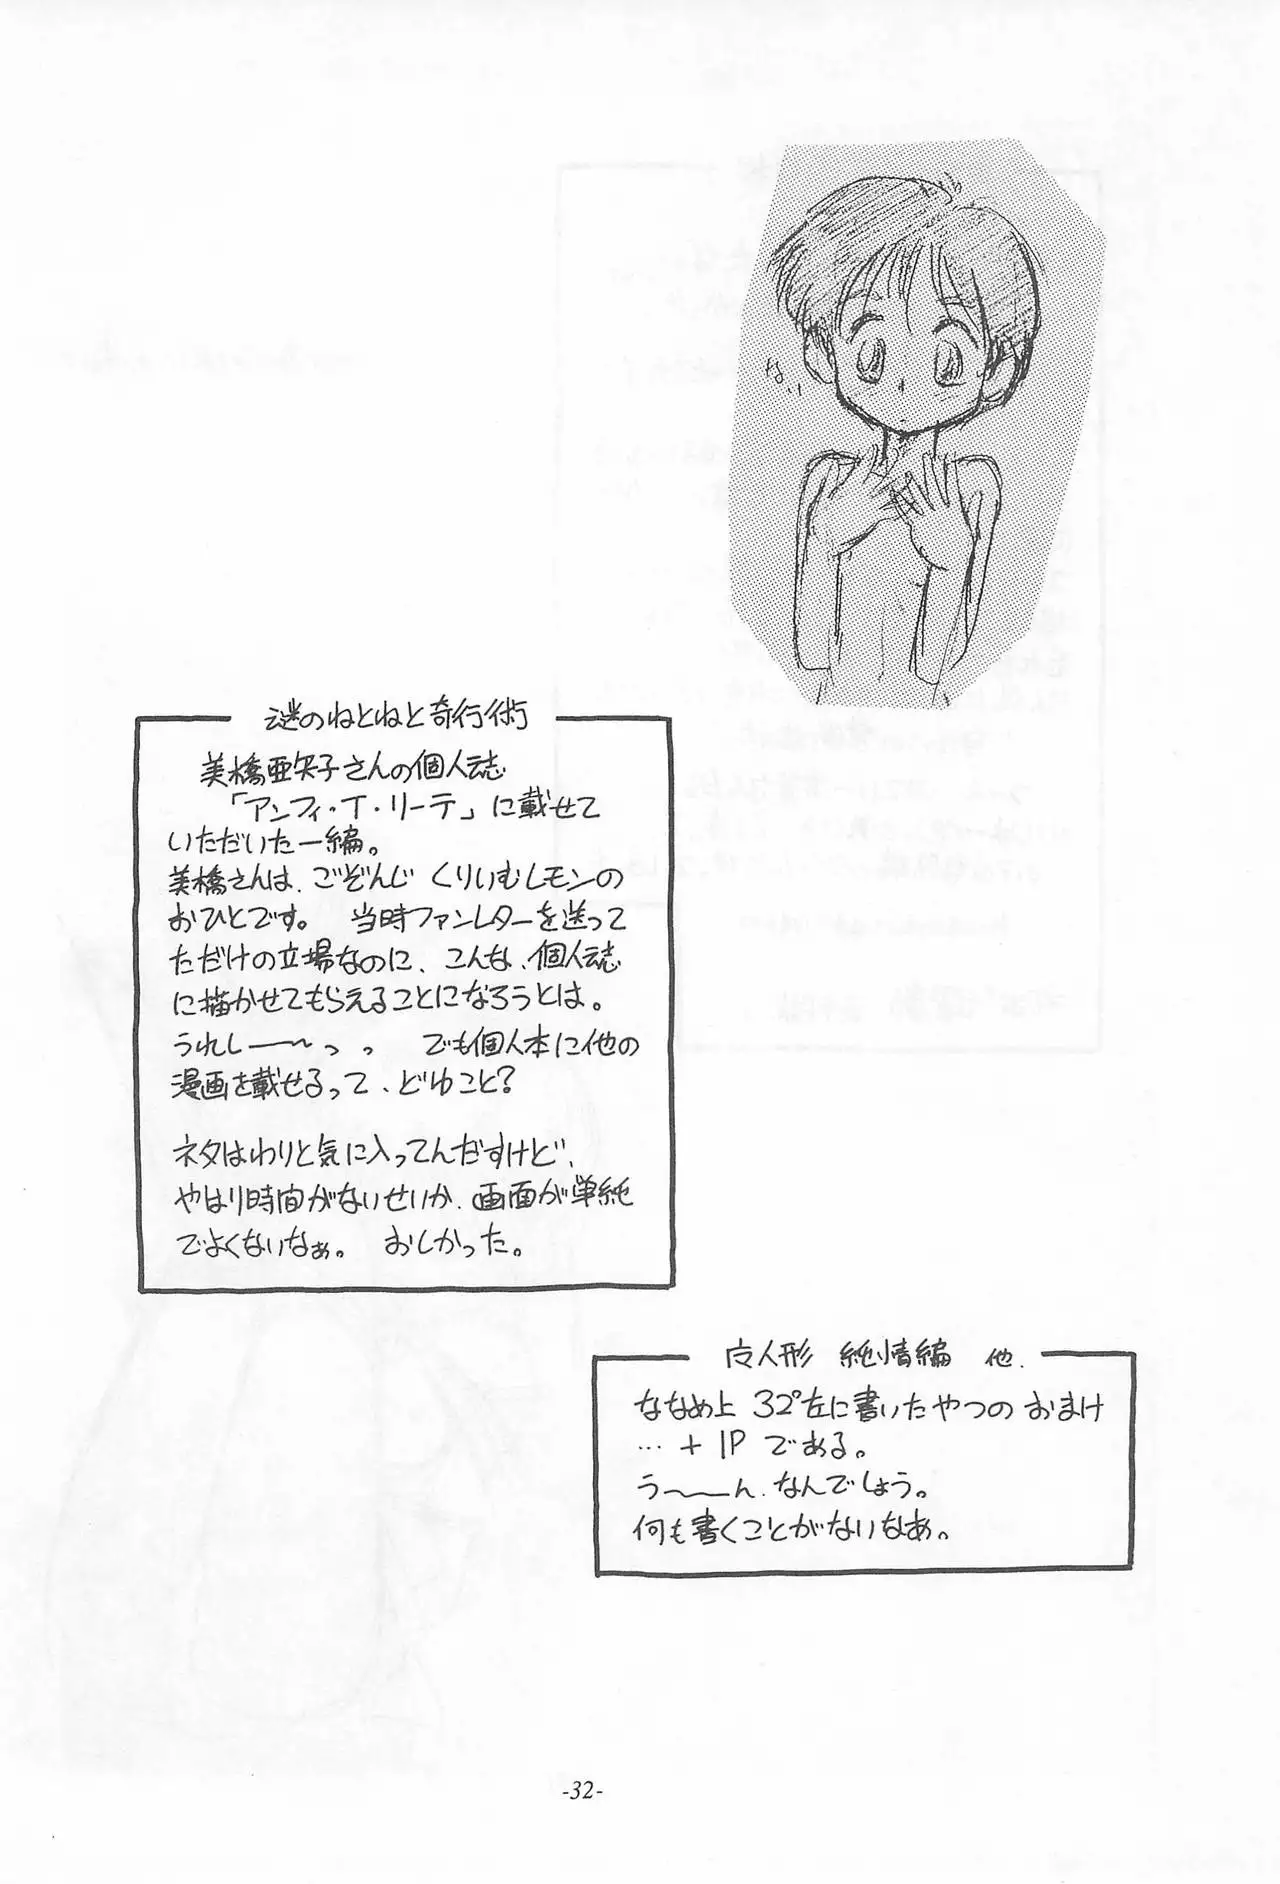 なり
謎のねとねと奇行術
美橋亜矢子さんの個人誌
「アンフィ・T・リーテ」に載せて
いただいた一編。
美橋さんは、ごぞんじ くりいむレモンの
おひとです。 当時ファンレターを送って
ただけの立場なのに、こんな、個人誌
に描かせてもらえることになろうとは。
うれしー〜っっ でも個人本に他の
漫画を載せるって、どゆこと?
ネタはわりと気に入ってんだすけど、
やはり時間がないせいか、画面が単純
でよくないなぁ。 おしかった。
人形 純情編 他.
ななめ上 32°左に書いたやつの おまけ
…+1P である。
う〜〜ん、なんでしょう。
何も書くことがないなあ。
-32-